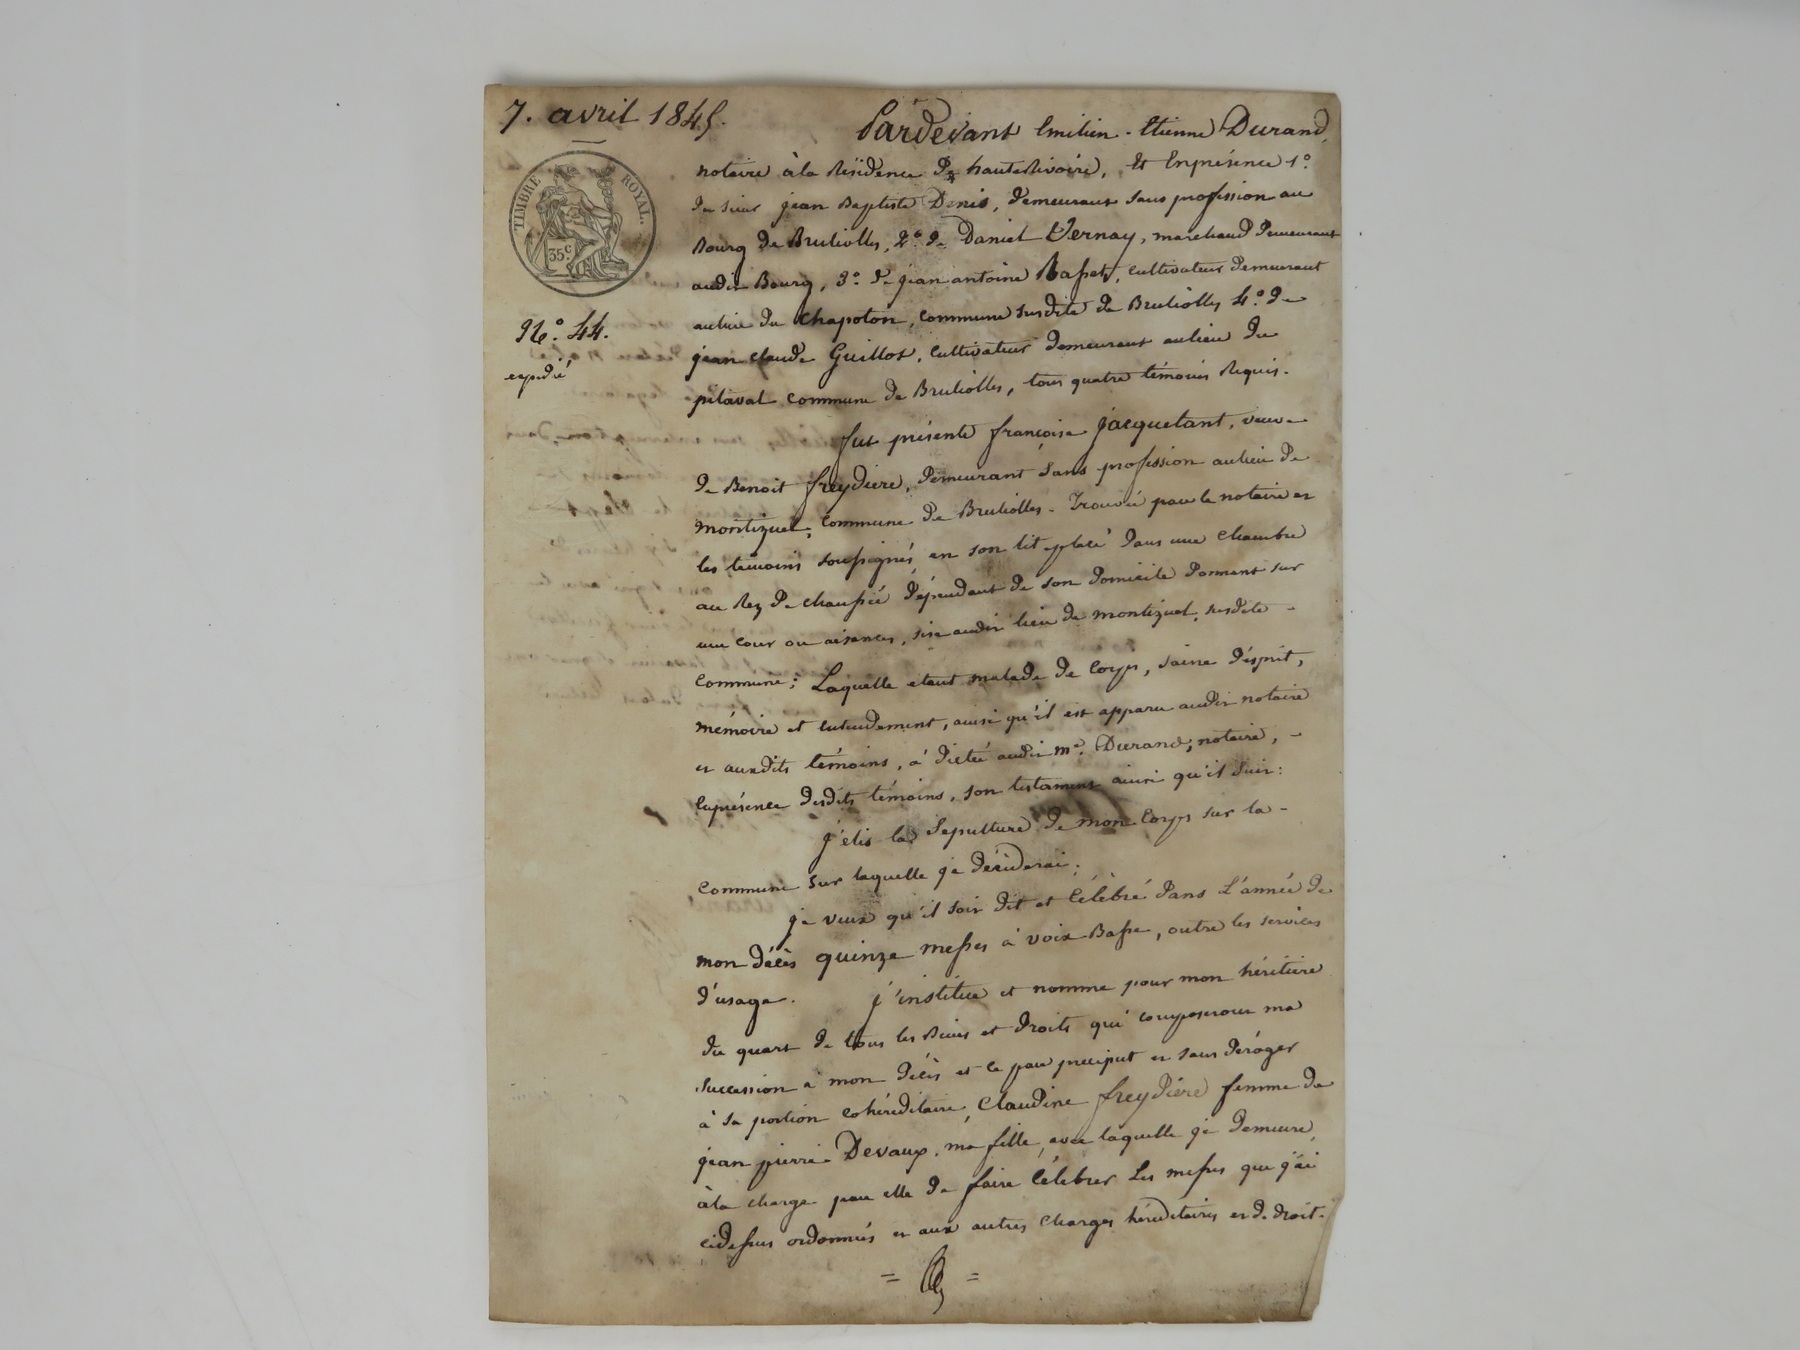 7. avril 1845.
Pardevant Emilien-Etienne Durand,
TIMBRE ROYAL.
35c.
notaire à la Résidence de hauteRivoire, Et Enprésence 1.°
du sieur jean Baptiste Denis, demeurant sans profession au
Bourg de Brulioles, 2.° de Daniel Vernay, marchand demeurant
audit Bourg, 3.° de jean antoine Basset, cultivateur demeurant
aulieu du Chapoton, Commune susdite de Bruliolles 4.° de
N.° 44.
jean claude Guillot, cultivateur demeurant aulieu du
expédié
pitaval commune de Bruliolles, tous quatre témoins Requis.
fut présente françoise jacquetant, veuve
de Benoit freydiere, demeurant sans profession aulieu de
montizuel, Commune de Bruliolles. Trouvée par le notaire et
les témoins soussignés en son lit placé dans une chambre
au Rez de chaussée dépendant de son domicile donnant sur
une cour ou aisances, sise audit lieu de montizuel, susdite
commune; Laquelle étant malade de Corps, saine d'ésprit,
mémoire et entendement, ainsi qu'il est apparu audit notaire
et auxdits témoins, à dicté audit me. Durand, notaire,
enprésence desdits témoins, son testament ainsi qu'il suit:
j'élis la sépulture de mon Corps sur la
commune sur laquelle je décéderai.
je veux qu'il soit dit et célébré dans L'année de
mon décès quinze messes à voix Basse, outre les services
d'usage. j'institue et nomme pour mon héritière
du quart de tous les Biens et droits qui composeront ma
succession à mon décès et ce par préciput et sans déroger
à sa portion cohéréditaire, Claudine freydière femme de
jean pierre Devaux, ma fille, avec laquelle je demeure,
àla charge par elle de faire célébrer Les messes que j'ai
cidessus ordonnés et aux autres charges héréditaires et de droit.